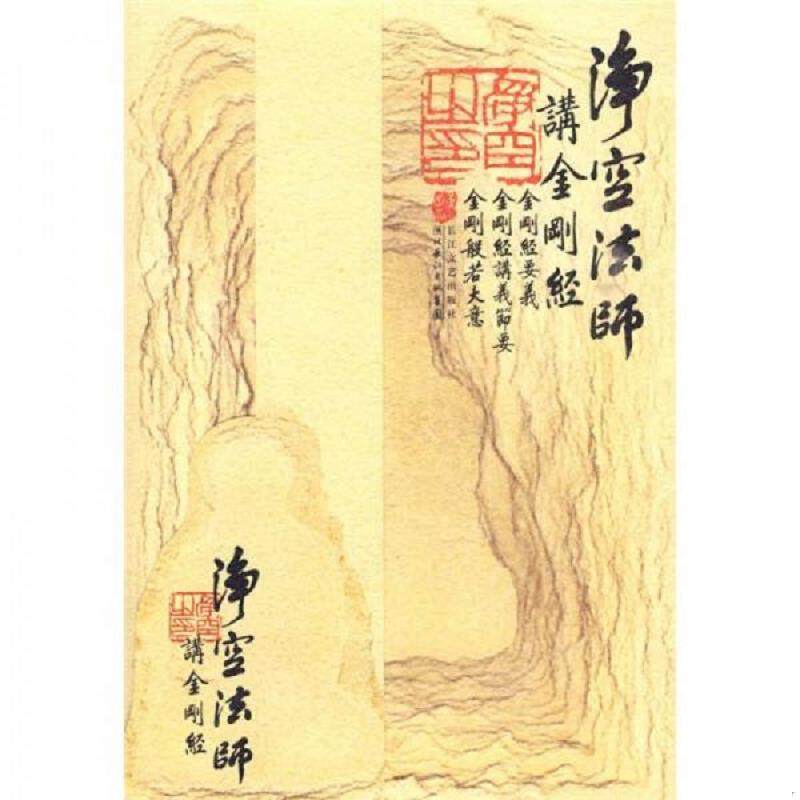 淨空法師
講金剛經
金剛經要義
金剛經講義節要
金剛般若大意
長江文艺出版社
淨空之印
淨空法師
講金剛經
淨空之印